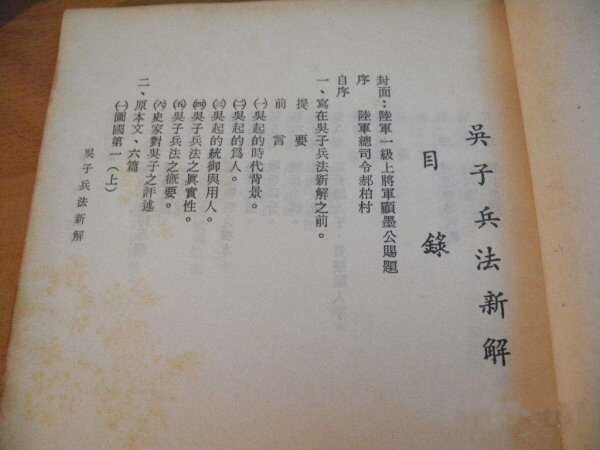 吳子兵法新解
目錄
封面：陸軍一級上將軍顧墨公賜題
序　陸軍總司令郝柏村
自序
一、寫在吳子兵法新解之前。
提要
前言
㈠吳起的時代背景。
㈡吳起的爲人。
㈢吳起的統御與用人。
㈣吳子兵法之眞實性。
㈤吳子兵法之概要。
㈥史家對吳子之評述
二、原本文、六篇
㈠圖國第一（上）
吳子兵法新解